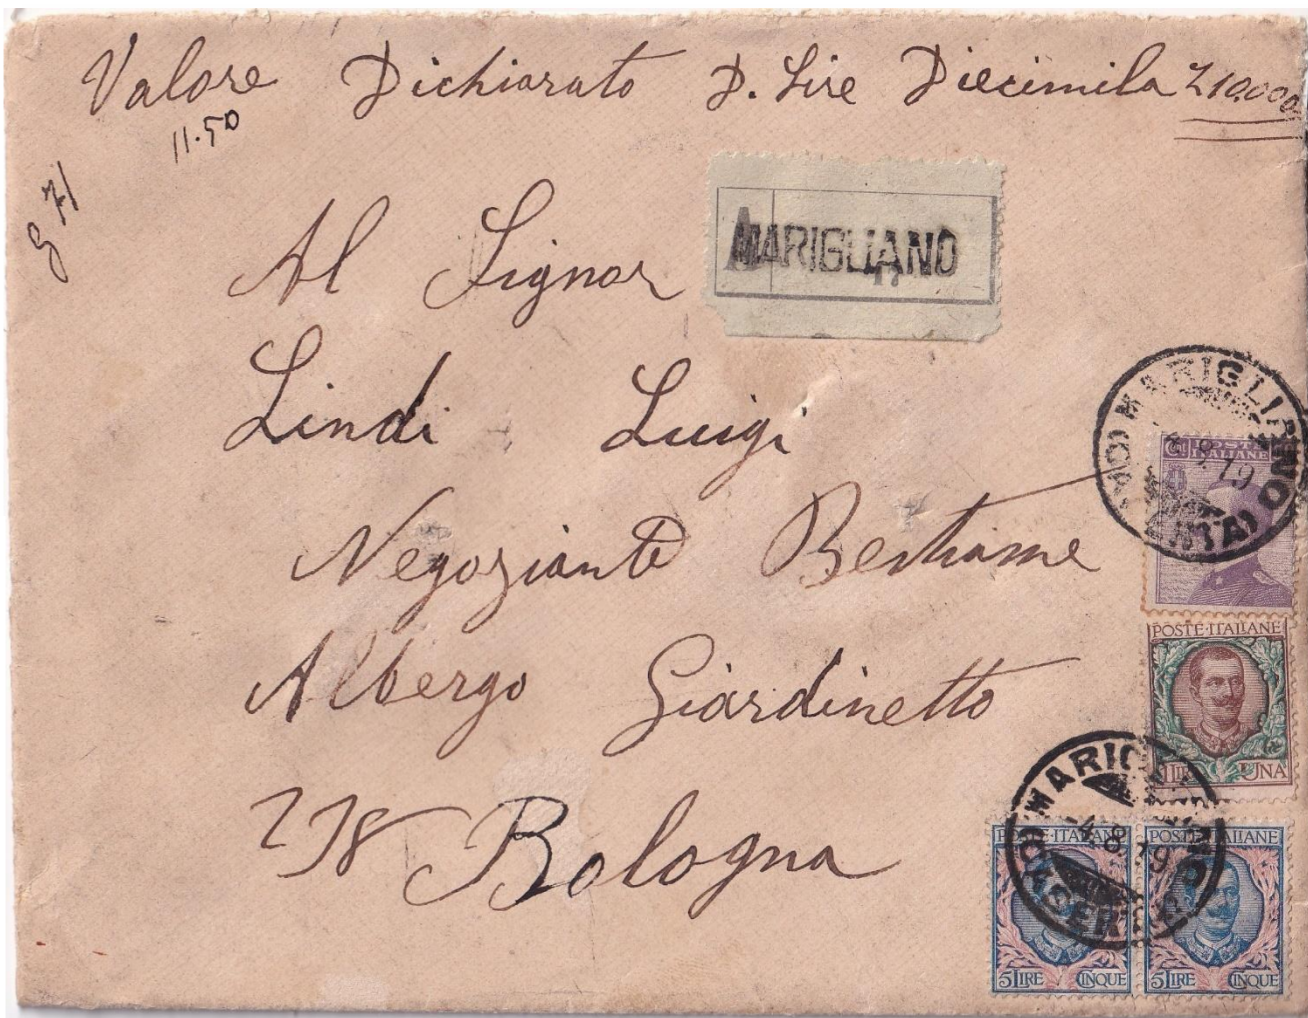 Valore Dichiarato D. Lire Diecimila £10.000
11.50
g 71
MARIGLIANO
Al Signor
Lindi Luigi
Negoziante Bestiame
Albergo Giardinetto
Bologna
MARIGLIANO
POSTE ITALIANE
POSTE·ITALIANE
UNA
MARIGLIANO
-4.8.19
CASERTA
POSTE·ITALIANE
POSTE·ITALIANE
5 LIRE CINQUE
5 LIRE CINQUE